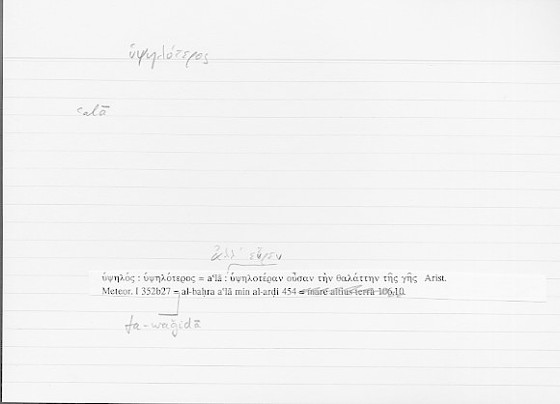 ὑψηλότερος
ʿalā
ἀλλ' εὗρεν
ὑψηλός : ὑψηλότερος = aʿlā : ὑψηλοτέραν οὖσαν τὴν θαλάττην τῆς γῆς Arist.
Meteor. I 352b27 = al-baḥra aʿlā min al-arḍi 454 = mare altius terra 106,10.
fa-waǧadā